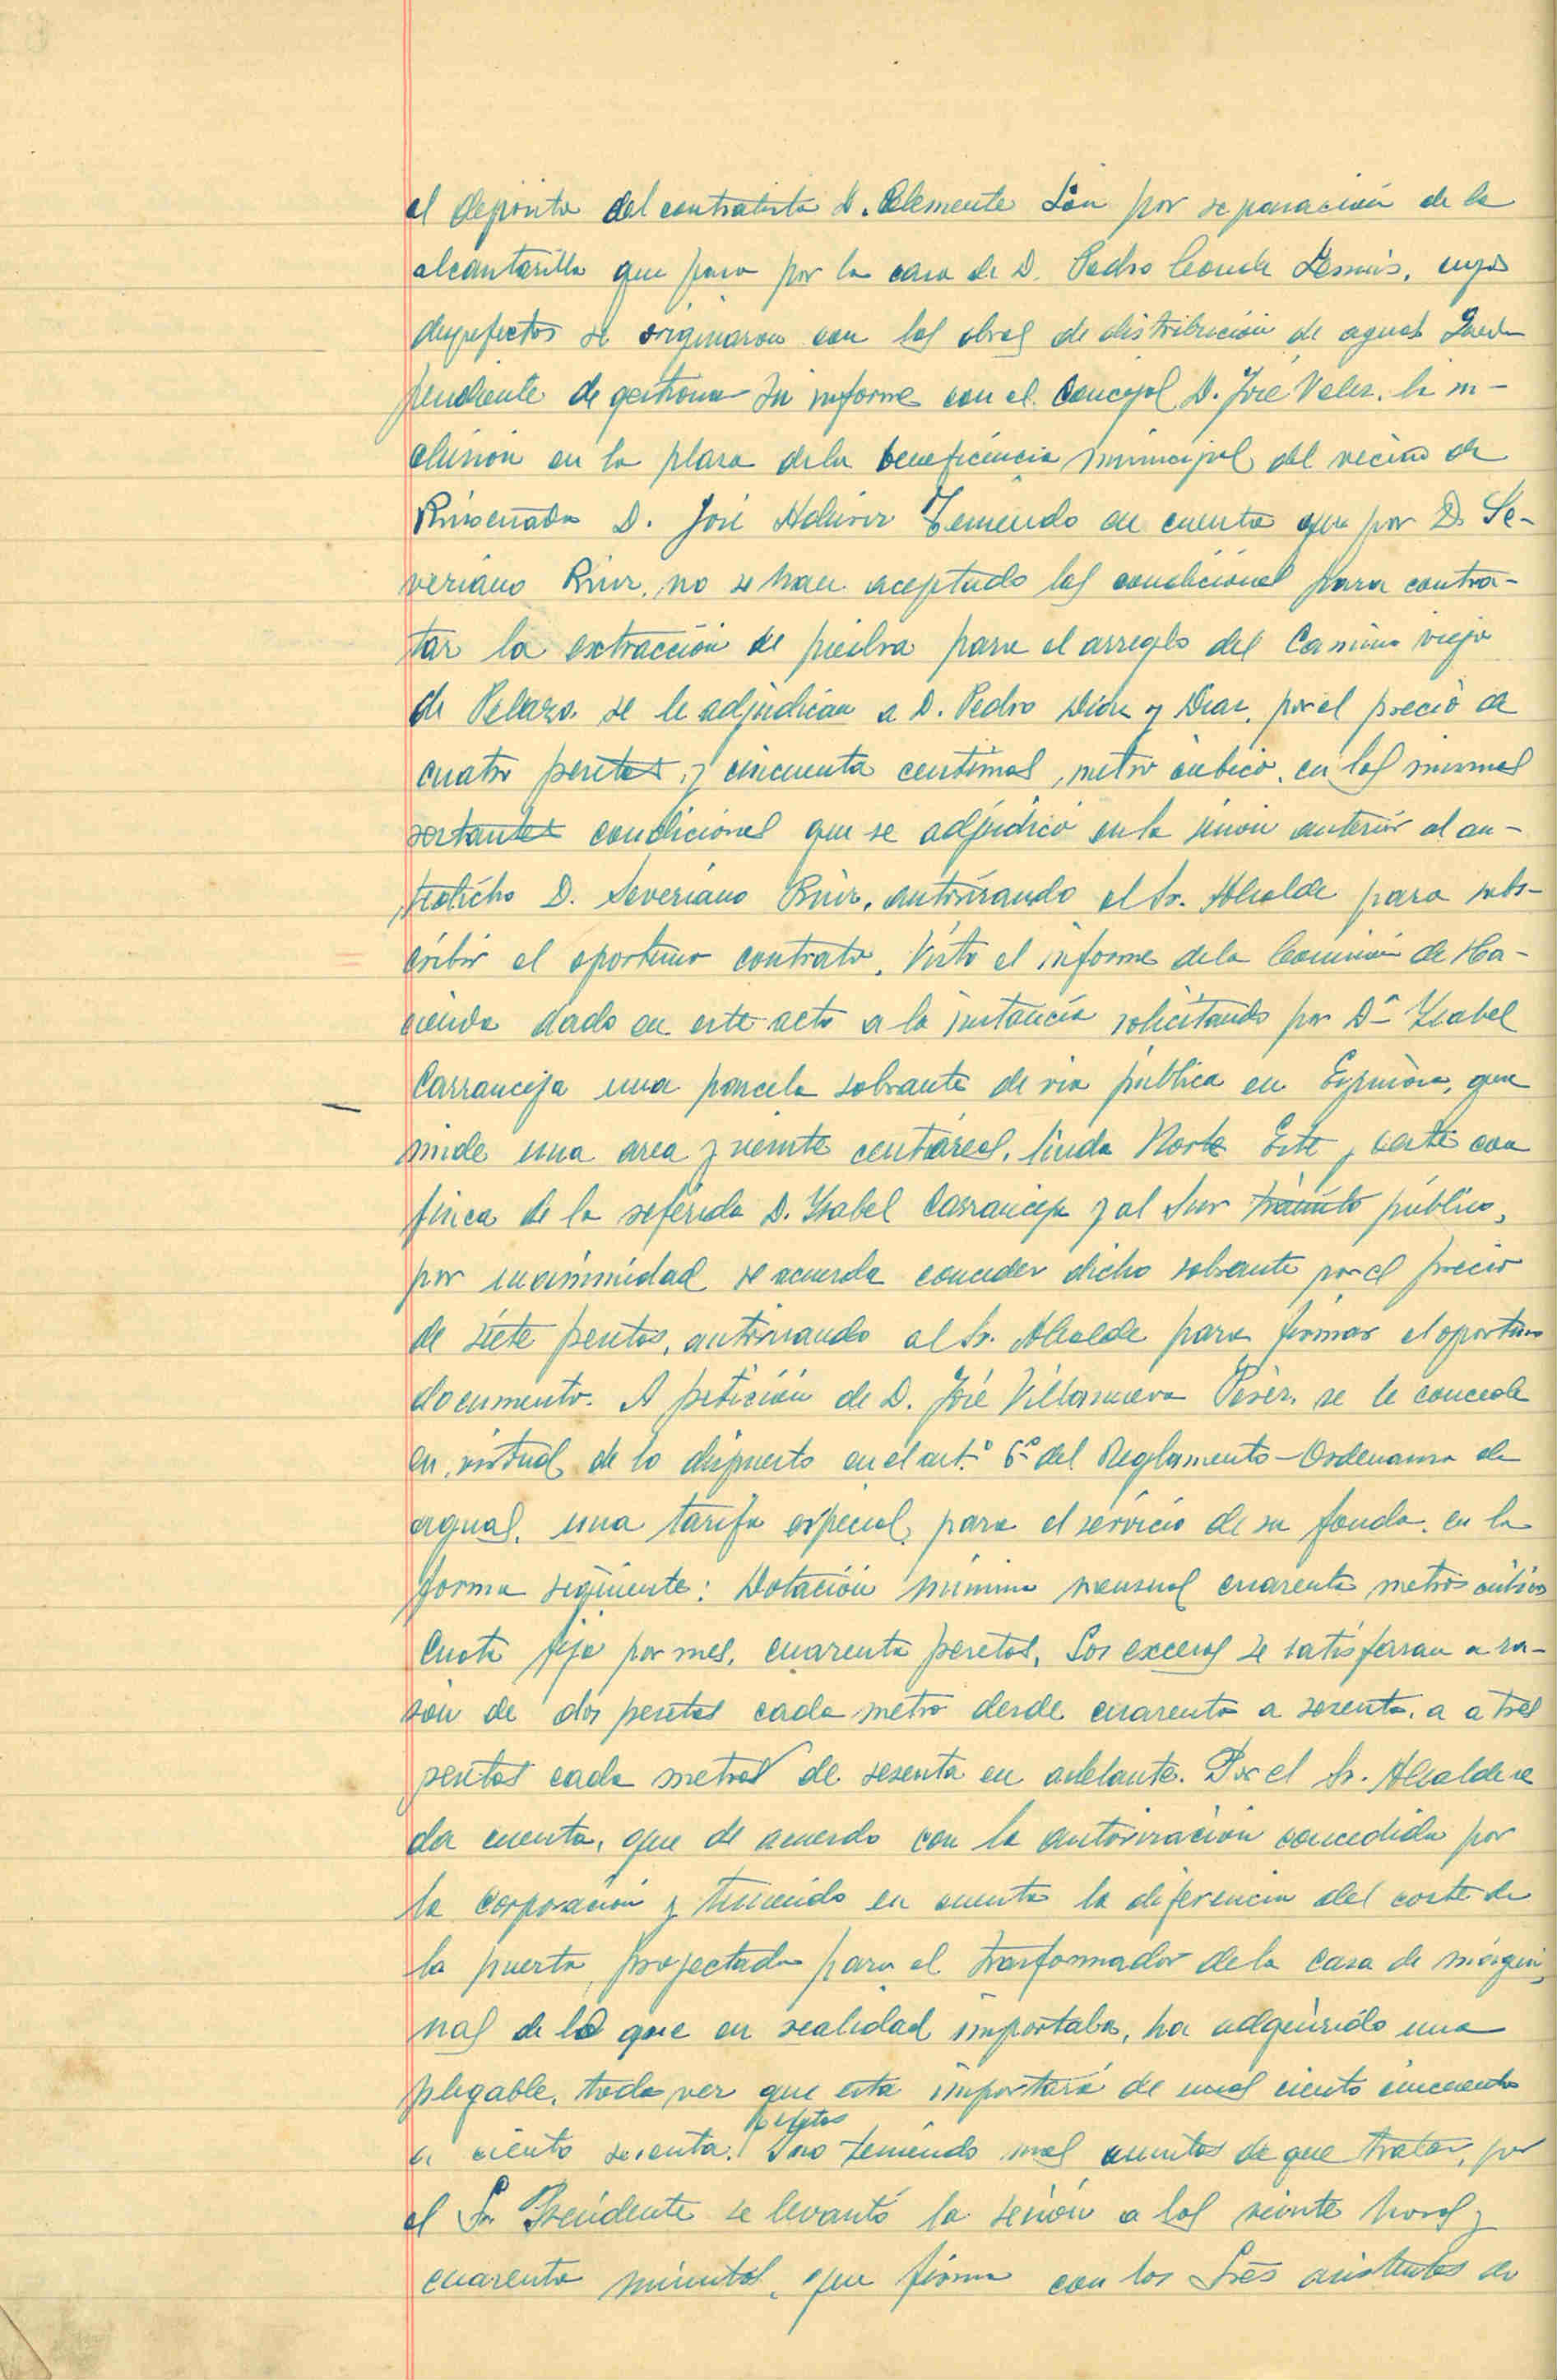 el deposito del contratista D. Clemente Lón por reparación de la
alcantarilla que pasa por la casa de D. Pedro Conde cuyos
desperfectos se originaron con las obras de distribución de aguas. Queda
pendiente de gestionar su informe con el Concejal D. José Velez, la in-
clusión en la plaza de la beneficencia municipal del vecino de
Rinconada D. José Teniendo en cuenta que por D. Se-
veriano Ruiz, no se han aceptado las condiciones para contra-
tar la extracción de piedra para el arreglo del Camino viejo
de se le adjudican a D. Pedro Díaz y Díaz, por el precio de
cuatro pesetas, y cincuenta centimos, metro cúbico, en las mismas
restantes condiciones que se adjudicó en la sesión anterior al an-
tedicho D. Severiano Ruiz, autorizando al Sr. Alcalde para subs-
cribir el oportuno contrato. Visto el informe de la Comisión de Ha-
cienda dado en este acto a la instancia solicitando por Dª Ysabel
Carranceja una parcela sobrante de via pública en que
mide una area y veinte centiáreas, linda Norte Este y oeste con
finca de la referida D. Ysabel Carranceja y al Sur tránsito público,
por unanimidad se acuerda conceder dicho sobrante por el precio
de siete pesetas, autorizando al Sr. Alcalde para firmar el oportuno
documento. A petición de D. José Villanueva se le concede
en virtud de lo dispuesto en el art.º 6º del Reglamento-Ordenanza de
aguas, una tarifa especial, para el servicio de su fonda, en la
forma siguiente: Dotación minima mensual cuarenta metros cúbicos
Cuota fija por mes, cuarenta pesetas, Los excesos se satisfarran a ra-
zón de dos pesetas cada metro desde cuarenta a sesenta, a a tres
pesetas cada metros de sesenta en adelante. Por el Sr. Alcalde se
da cuenta, que de acuerdo con la autorización concedida por
la Corporación y teniendo en cuenta la diferencia del coste de
la puerta, proyectada para el trasformador de la casa de máqui
nas de lo que en realidad importaba, ha adquirido una
plegable, toda vez que esta importará de unas ciento cincuenta
a ciento sesenta pesetas. Y no teniendo mas asuntos de que tratar, por
el Sr Presidente se levantó la sesión a las veinte horas y
cuarenta minutos, que firma con los Sres asistentes de